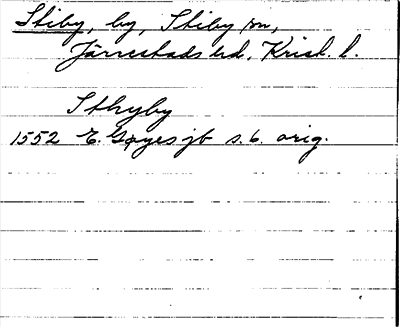 Stiby, by, Stiby sn,
Järrestads hd, Krist. l.
Sthyby
1552 E. Gøyes jb s. 6. orig.